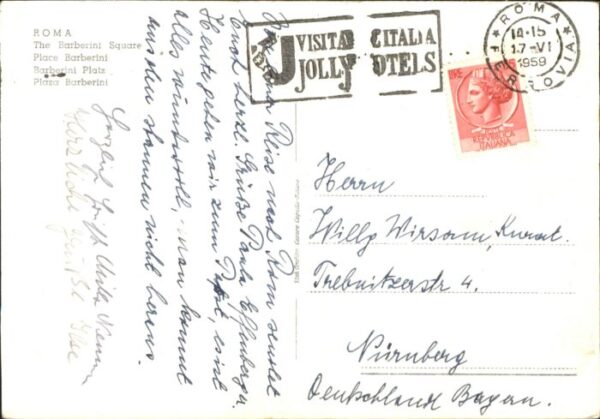 ROMA
The Barberini Square
Place Barberini
Barberini Platz
Plaza Barberini
VISITATE L'ITALIA
JOLLY HOTELS
ROMA
14-15
17-VI
1959
FERROVIA
LIRE
REPVBBLICA
ITALIANA
Reise nach Rom sendet
Euch herzl. Grüße Paula
Heute gehen wir zum Papst, es ist
alles wundervoll, man kommt
aus dem staunen nicht heraus.
Herzliche Grüße
Herrn
Willy Wirsam, Kurat.
Trebnitzerstr. 4
Nürnberg
Deutschland Bayern.